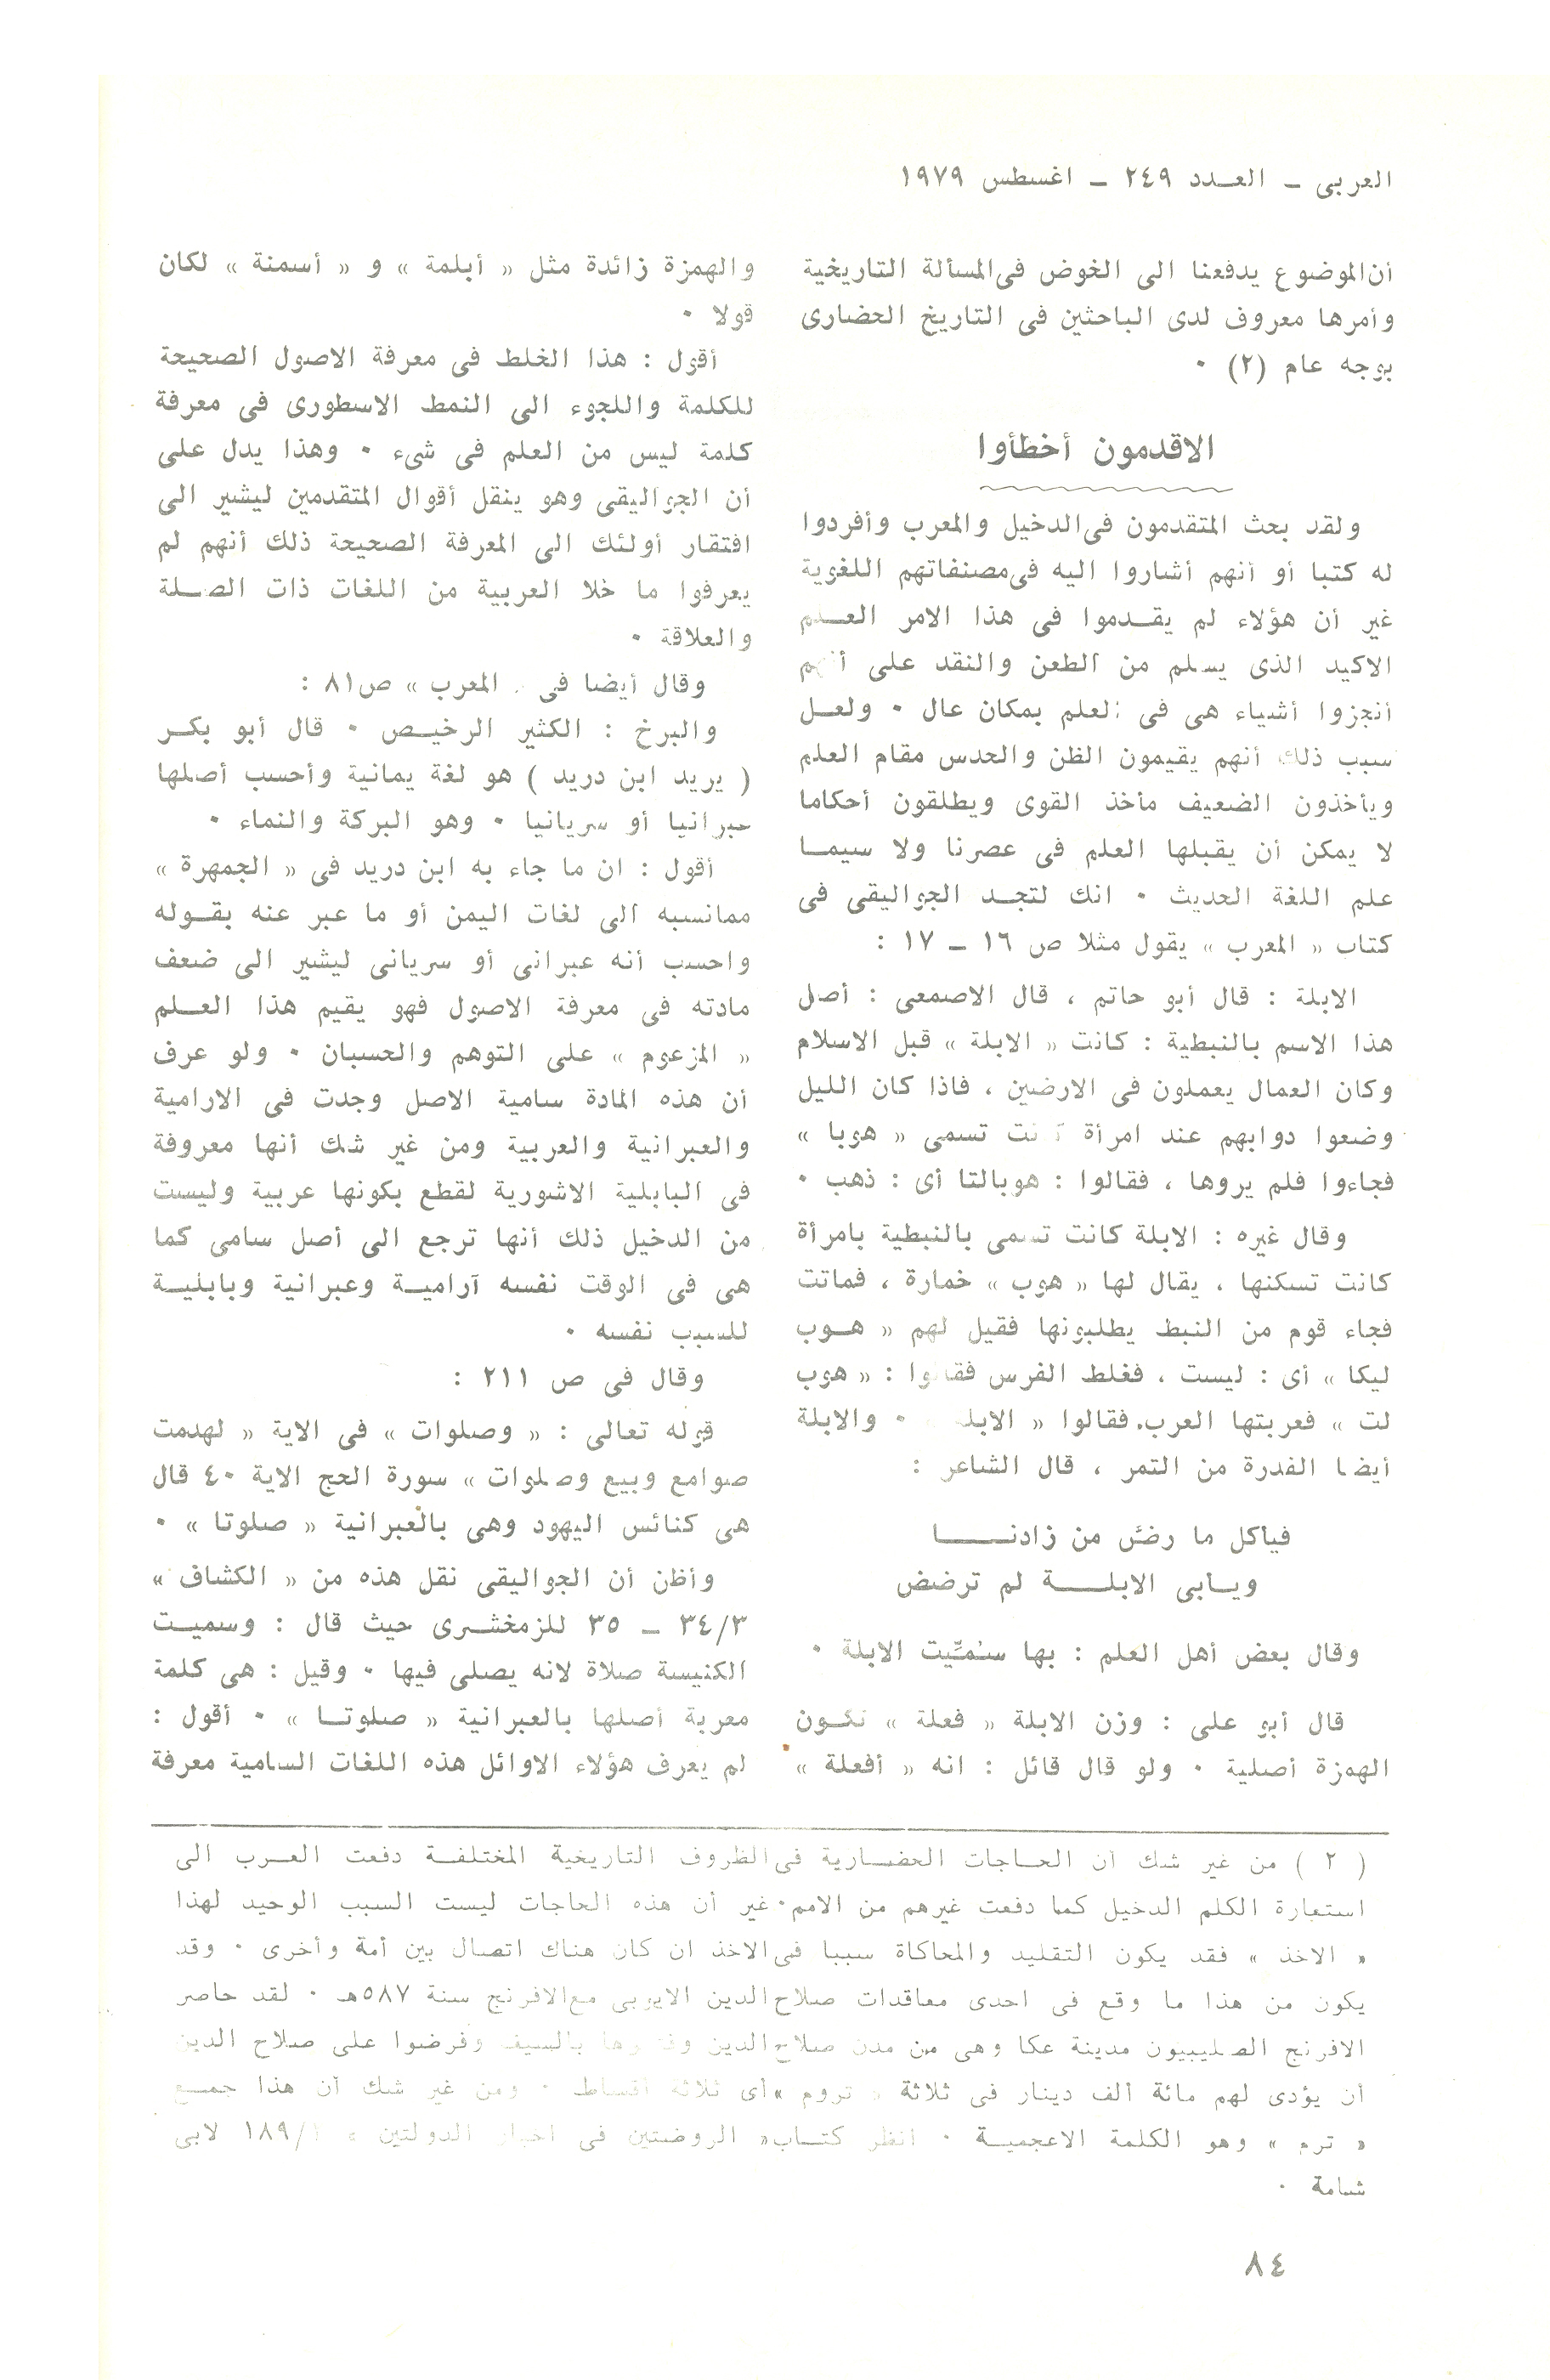 العربى ــ العـــدد ٢٤٩ ــ اغسطس ١٩٧٩
أن الموضوع يدفعنا الى الخوض فى المسألة التاريخية
وأمرها معروف لدى الباحثين فى التاريخ الحضارى
بوجه عام (٢) ٠
الاقدمون أخطأوا
ولقد بحث المتقدمون فى الدخيل والمعرب وأفردوا
له كتبا أو أنهم أشاروا اليه فى مصنفاتهم اللغوية
غير أن هؤلاء لم يقــدموا فى هذا الامر العــلم
الاكيد الذى يسلم من الطعن والنقد على أنهم
أنجزوا أشياء هى فى العلم بمكان عال ٠ ولعــل
سبب ذلك أنهم يقيمون الظن والحدس مقام العلم
ويأخذون الضعيف مأخذ القوى ويطلقون أحكاما
لا يمكن أن يقبلها العلم فى عصرنا ولا سيمــا
علم اللغة الحديث ٠ انك لتجــد الجواليقى فى
كتاب « المعرب » يقول مثلا ص ١٦ ــ ١٧ :
الابلة : قال أبو حاتم ، قال الاصمعى : أصل
هذا الاسم بالنبطية : كانت « الابلة » قبل الاسلام
وكان العمال يعملون فى الارضين ، فاذا كان الليل
وضعوا دوابهم عند امرأة كانت تسمى « هوبا »
فجاءوا فلم يروها ، فقالوا : هوبالتا أى : ذهب ٠
وقال غيره : الابلة كانت تسمى بالنبطية بامرأة
كانت تسكنها ، يقال لها « هوب » خمارة ، فماتت
فجاء قوم من النبط يطلبونها فقيل لهم « هــوب
ليكا » أى : ليست ، فغلط الفرس فقالوا : « هوب
لت » فعربتها العرب. فقالوا « الابلة » ٠ والابلة
أيضا الفدرة من التمر ، قال الشاعر :
فيأكل ما رضّ من زادنـــــا
ويــأبى الابلـــــة لم ترضض
وقال بعض أهل العلم : بها سُمِّيت الابلة ٠
قال أبو على : وزن الابلة « فعلة » تكــون
الهمزة أصلية ٠ ولو قال قائل : انه « أفعلة »
والهمزة زائدة مثل « أبلمة » و « أسمنة » لكان
قولا ٠
أقول : هذا الغلط فى معرفة الاصول الصحيحة
للكلمة واللجوء الى النمط الاسطورى فى معرفة
كلمة ليس من العلم فى شىء ٠ وهذا يدل على
أن الجواليقى وهو ينقل أقوال المتقدمين ليشير الى
افتقار أولئك الى المعرفة الصحيحة ذلك أنهم لم
يعرفوا ما خلا العربية من اللغات ذات الصــلة
والعلاقة ٠
وقال أيضا فى « المعرب » ص٨١ :
والبرخ : الكثير الرخيــص ٠ قال أبو بكــر
( يريد ابن دريد ) هو لغة يمانية وأحسب أصلها
عبرانيا أو سريانيا ٠ وهو البركة والنماء ٠
أقول : ان ما جاء به ابن دريد فى « الجمهرة »
ممانسبه الى لغات اليمن أو ما عبر عنه بقــوله
واحسب أنه عبرانى أو سريانى ليشير الى ضعف
مادته فى معرفة الاصول فهو يقيم هذا العــلم
« المزعوم » على التوهم والحسبان ٠ ولو عرف
أن هذه المادة سامية الاصل وجدت فى الارامية
والعبرانية والعربية ومن غير شك أنها معروفة
فى البابلية الاشورية لقطع بكونها عربية وليست
من الدخيل ذلك أنها ترجع الى أصل سامى كما
هى فى الوقت نفسه آراميــة وعبرانية وبابليــة
للسبب نفسه ٠
وقال فى ص ٢١١ :
قوله تعالى : « وصلوات » فى الاية « لهدمت
صوامع وبيع وصلوات » سورة الحج الاية ٤٠ قال
هى كنائس اليهود وهى بالعبرانية « صلوتا » ٠
وأظن أن الجواليقى نقل هذه من « الكشاف »
٣٤/٣ ــ ٣٥ للزمخشــرى حيث قال : وسميــت
الكنيسة صلاة لانه يصلى فيها ٠ وقيل : هى كلمة
معربة أصلها بالعبرانية « صلوتــا » ٠ أقول :
لم يعرف هؤلاء الاوائل هذه اللغات السامية معرفة
( ٢ ) من غير شك أن الحــاجات الحضــارية فى الظروف التاريخية المختلفــة دفعت العــرب الى
استعارة الكلم الدخيل كما دفعت غيرهم من الامم٠ غير أن هذه الحاجات ليست السبب الوحيد لهذا
« الاخذ » فقد يكون التقليد والمحاكاة سببا فى الاخذ ان كان هناك اتصال بين أمة وأخرى ٠ وقد
يكون من هذا ما وقع فى احدى معاقدات صلاح الدين الايوبى مع الافرنج سنة ٥٨٧هـ ٠ لقد حاصر
الافرنج الصليبيون مدينة عكا وهى من مدن صلاح الدين بالسيف وفرضوا على صلاح الدين
أن يؤدى لهم مائة ألف دينار فى ثلاثة « تروم » أى ثلاثة أقساط ٠ ومن غير شك أن هذا جمــع
« ترم » وهو الكلمة الاعجميــة ٠ انظر كتــاب« الروضتين فى اخبار الدولتين » ١٨٩/١ لابى
شامة ٠
٨٤